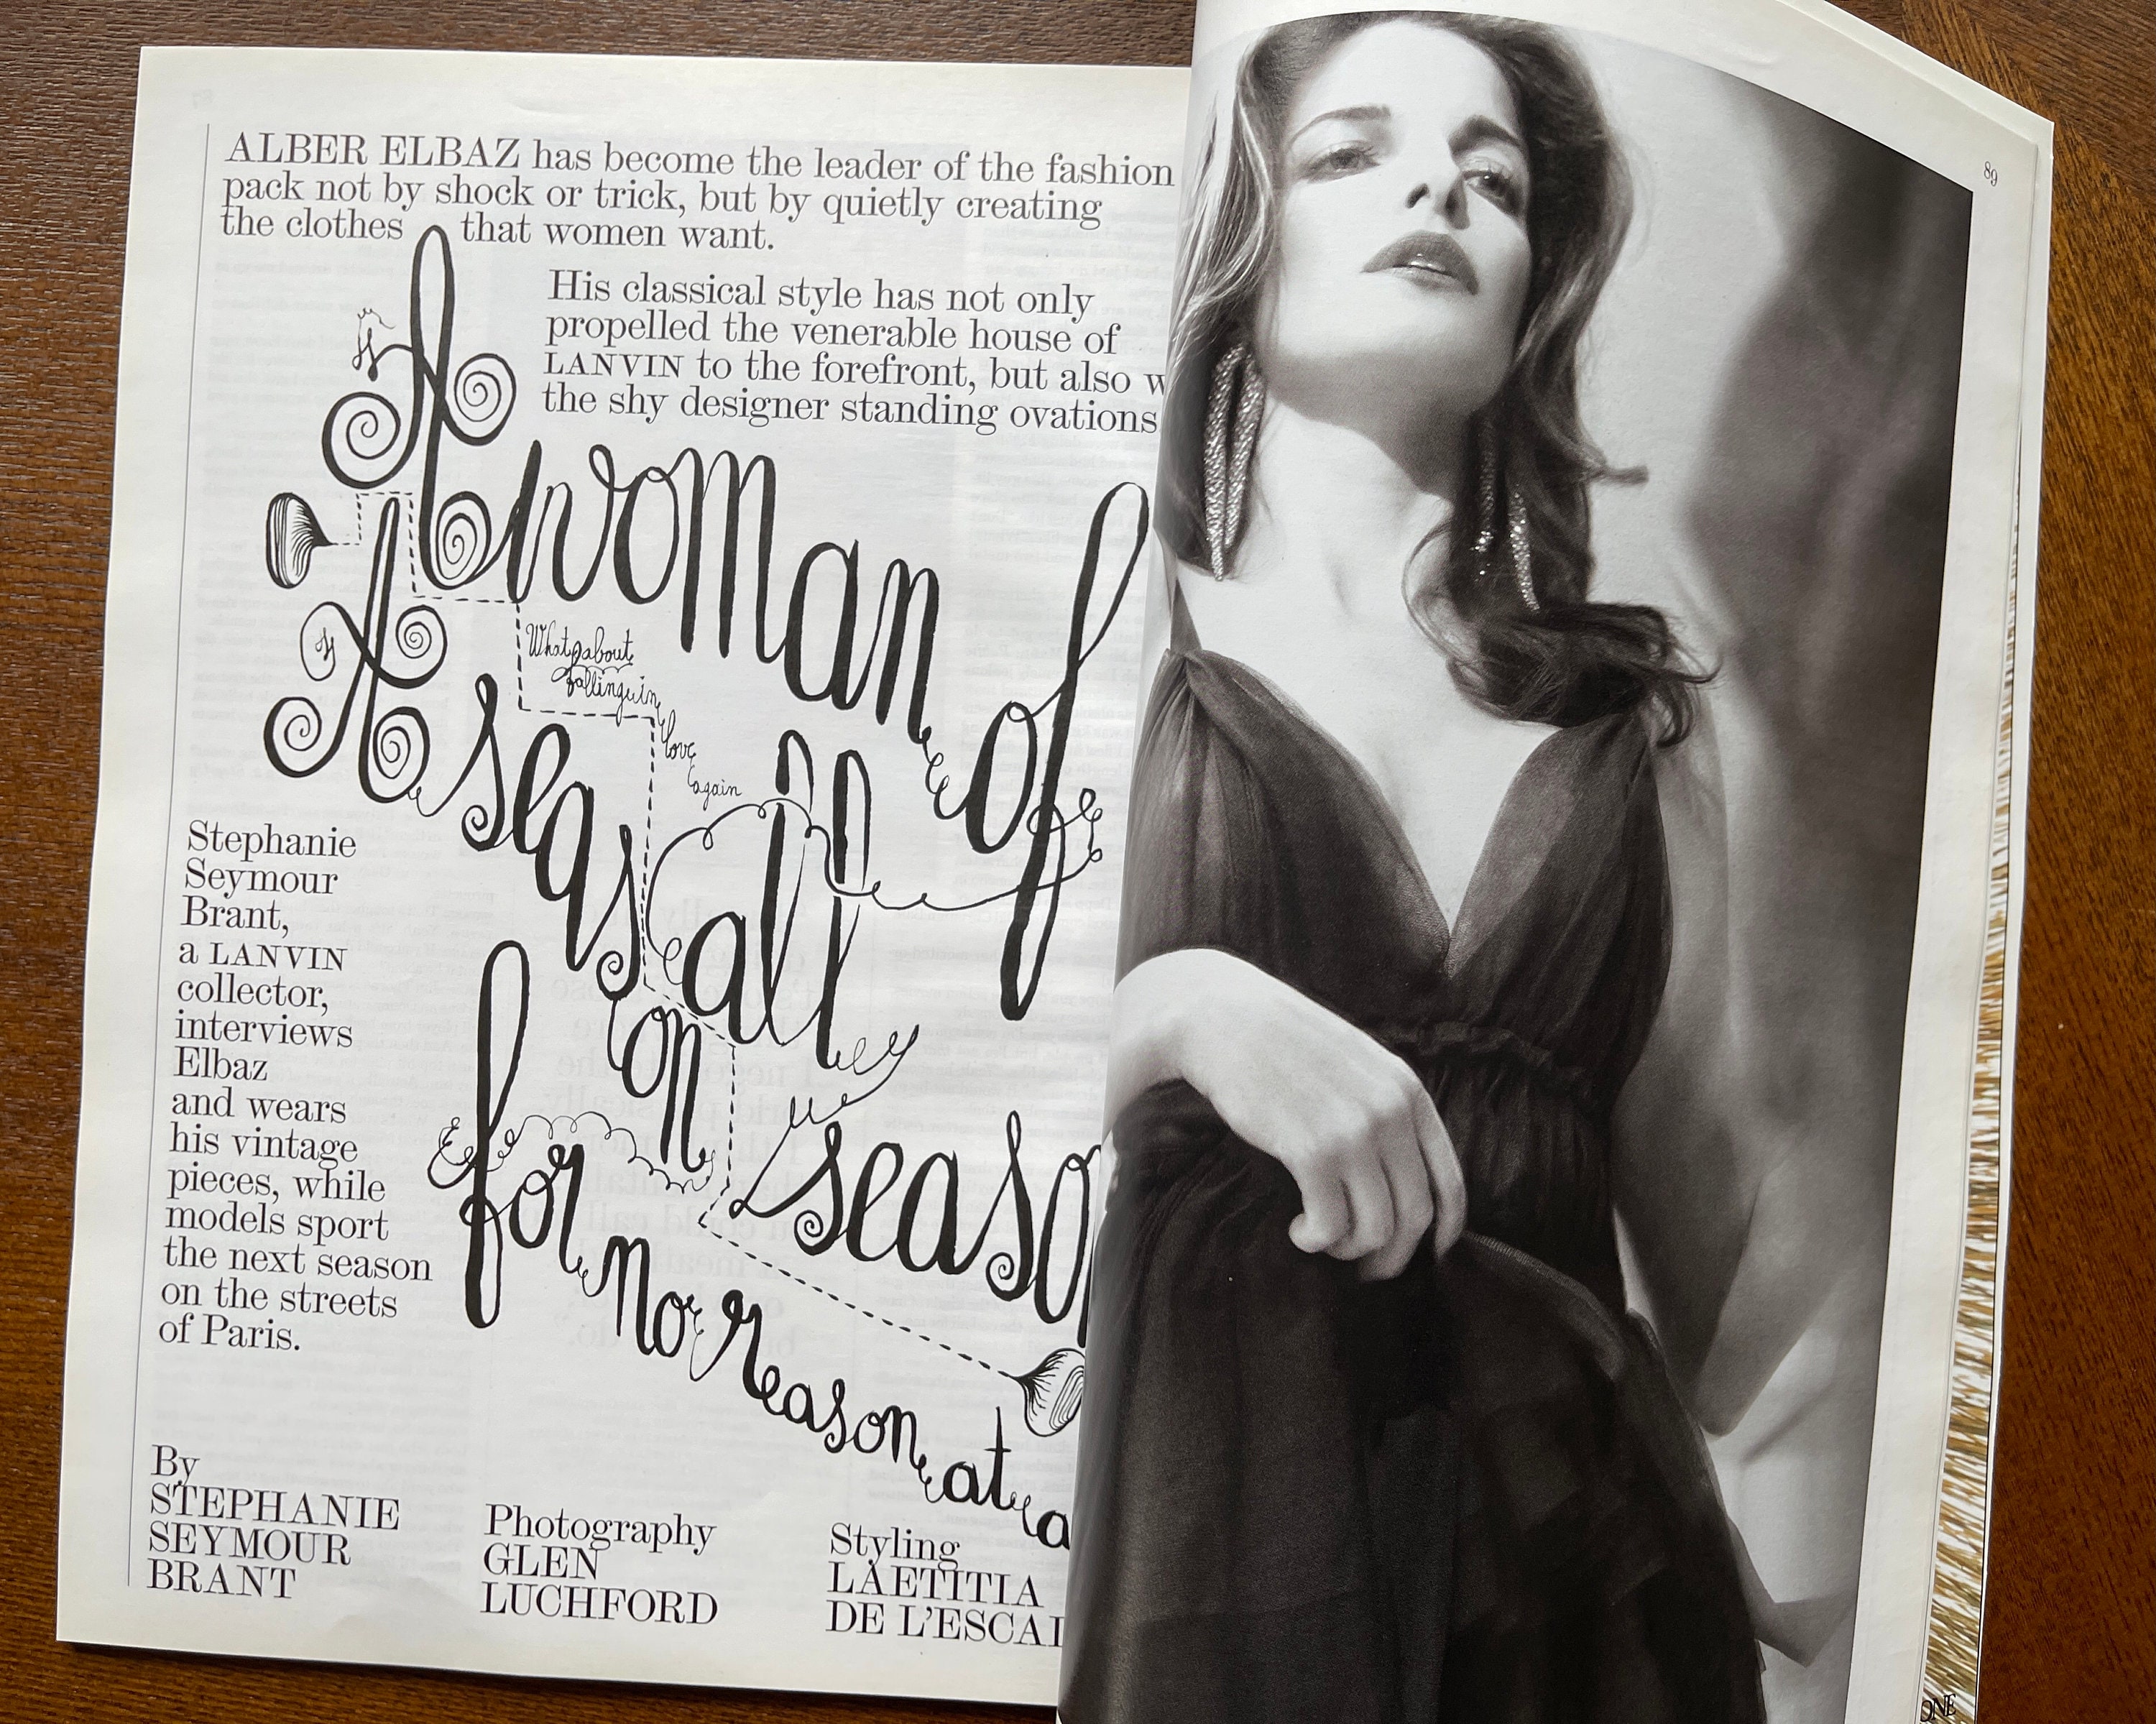 ALBER ELBAZ has become the leader of the fashion
pack not by shock or trick, but by quietly creating
the clothes that women want.
His classical style has not only
propelled the venerable house of
LANVIN to the forefront, but also w
the shy designer standing ovations
A woman of
What about
falling in
love
again
A seas
on
all
season
for no reason at a
Stephanie
Seymour
Brant,
a LANVIN
collector,
interviews
Elbaz
and wears
his vintage
pieces, while
models sport
the next season
on the streets
of Paris.
By
STEPHANIE
SEYMOUR
BRANT
Photography
GLEN
LUCHFORD
Styling
LAETITIA
DE L'ESCAI
89
ONE